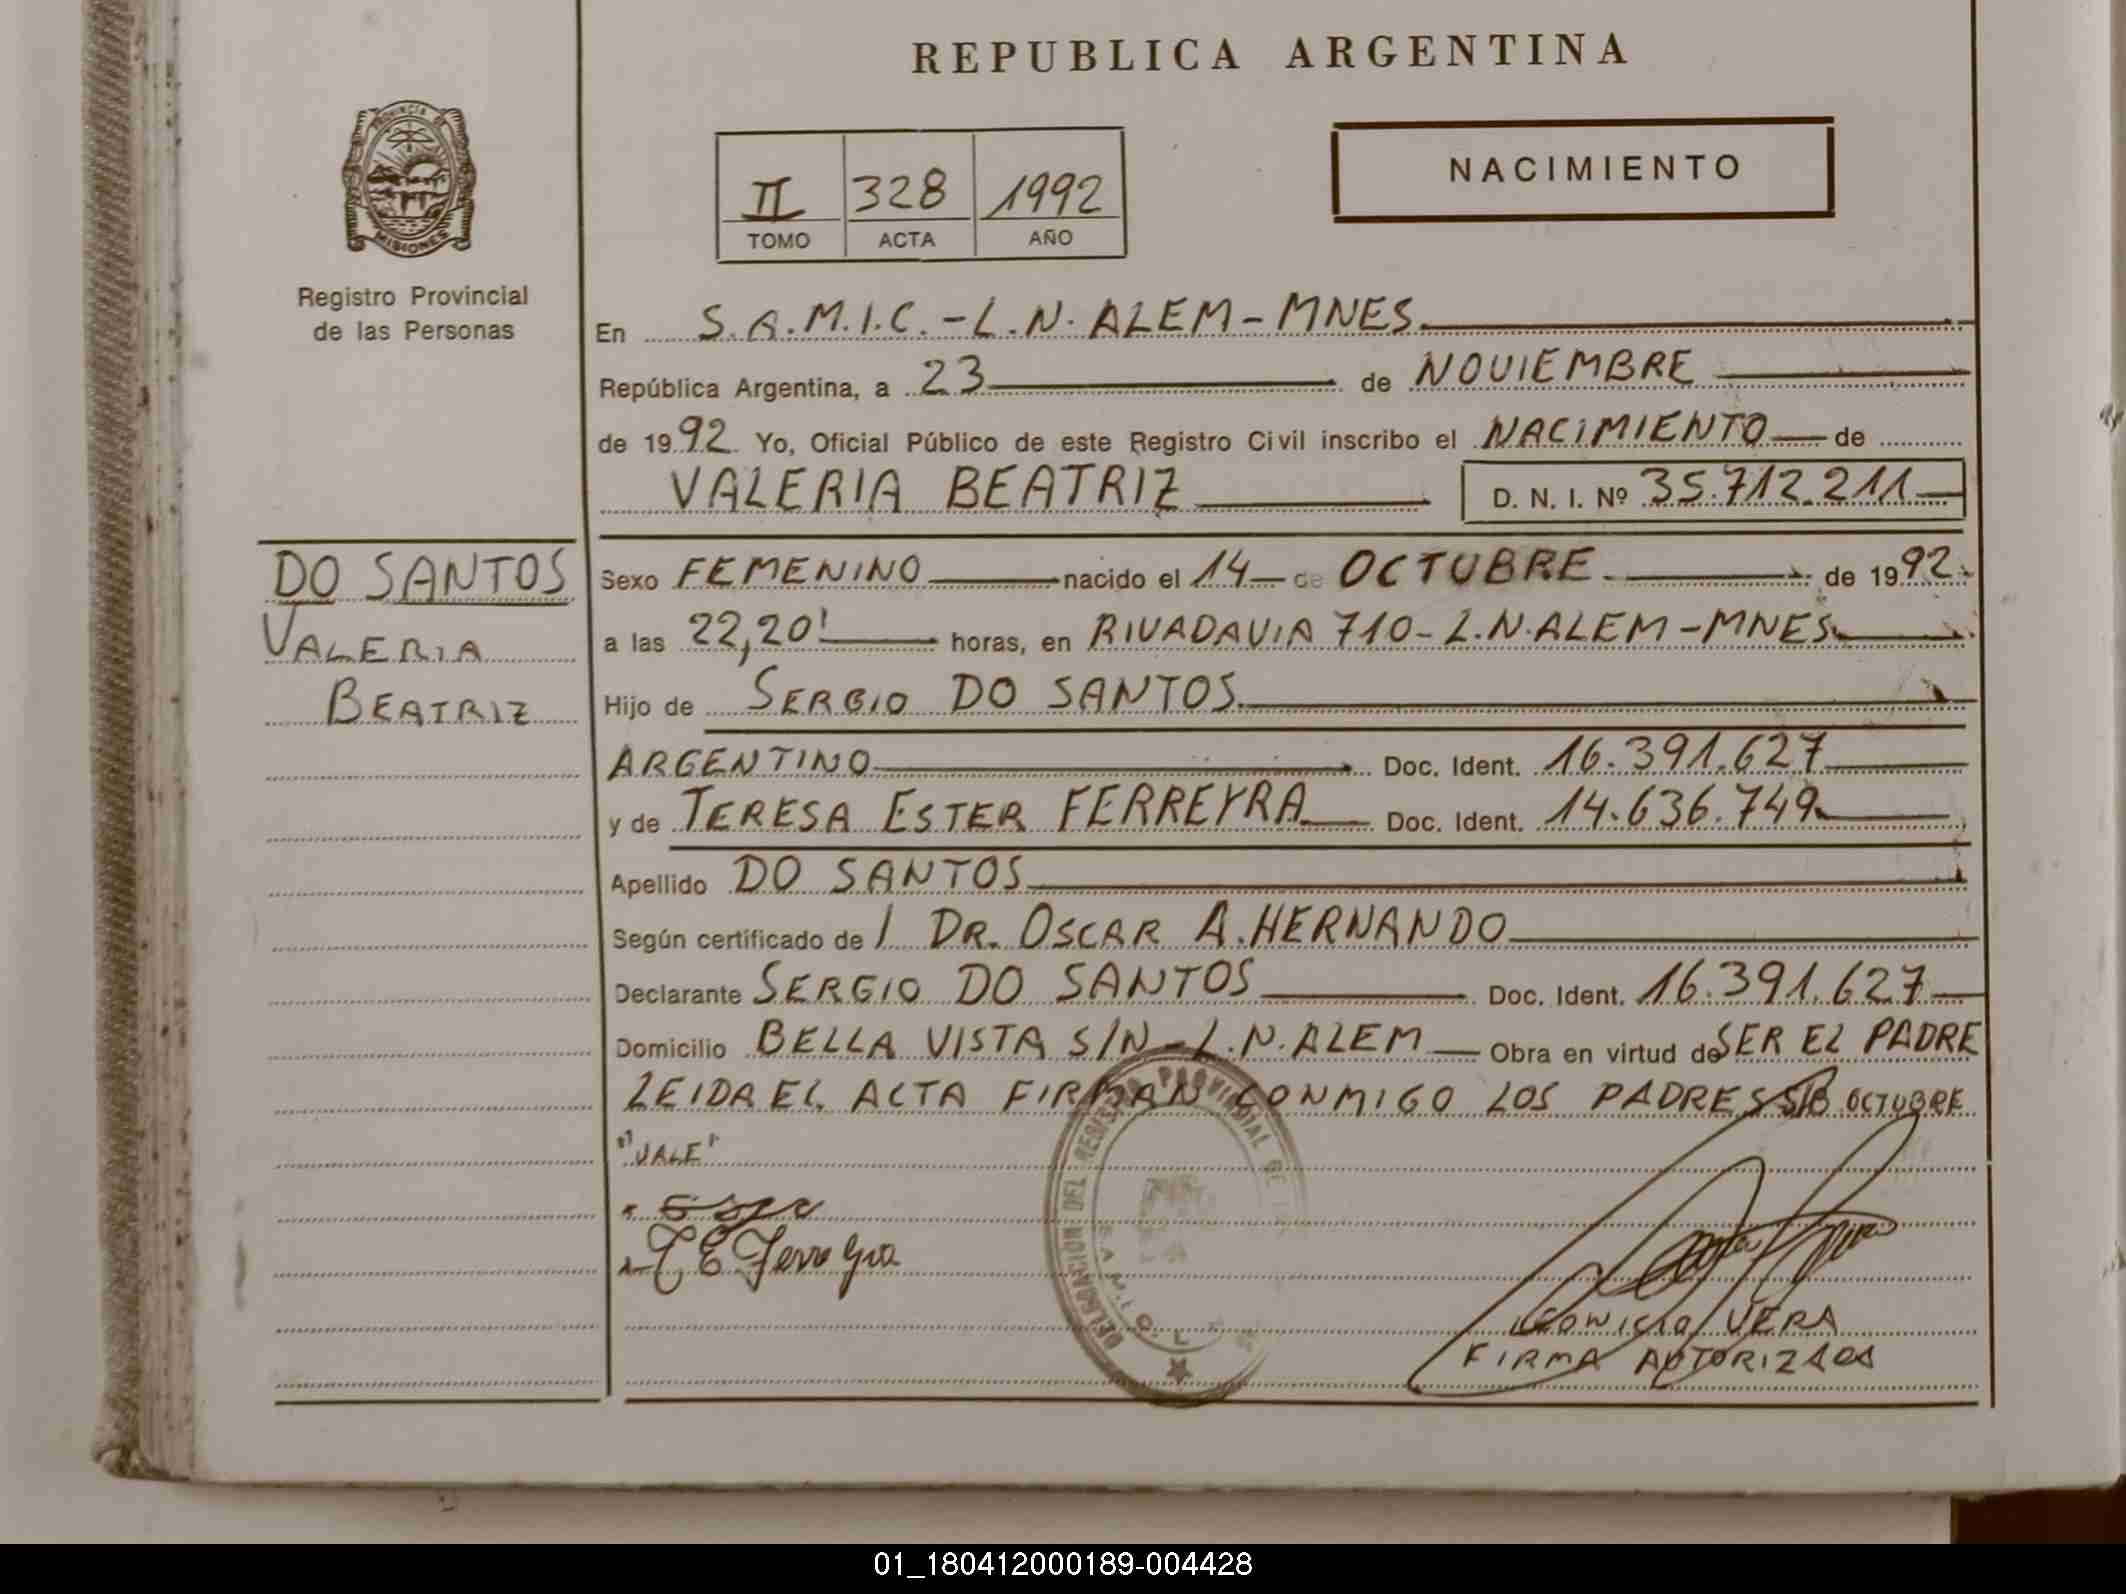 REPUBLICA ARGENTINA
PROVINCIA DE
MISIONES
Registro Provincial
de las Personas
II 328 1992
TOMO ACTA AÑO
NACIMIENTO
En S.A.M.I.C.-L.N.ALEM-MNES
República Argentina, a 23 de NOVIEMBRE
de 1992 Yo, Oficial Público de este Registro Civil inscribo el NACIMIENTO de
VALERIA BEATRIZ D. N. I. Nº 35.712.211
DO SANTOS
VALERIA
BEATRIZ
Sexo FEMENINO nacido el 14 de OCTUBRE de 1992
a las 22,20' horas, en RIVADAVIA 710-L.N.ALEM-MNES
Hijo de SERGIO DO SANTOS
ARGENTINO Doc. Ident. 16.391.627
y de TERESA ESTER FERREYRA Doc. Ident. 14.636.749
Apellido DO SANTOS
Según certificado de / DR. OSCAR A. HERNANDO
Declarante SERGIO DO SANTOS Doc. Ident. 16.391.627
Domicilio BELLA VISTA S/N-L.N.ALEM Obra en virtud de SER EL PADRE
LEIDA EL ACTA FIRMAN CONMIGO LOS PADRES S/B OCTUBRE
"VALE"
T E Ferreyra
DELEGACION DEL REGISTRO PROVINCIAL DE
VERA
FIRMA AUTORIZADA
01_180412000189-004428